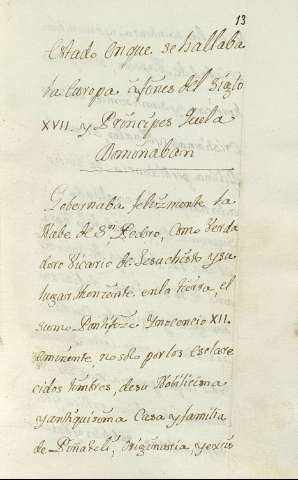 13
Estado en que se hallaba
la Europa á fines del Siglo
XVII. y Príncipes que la
Dominaban
Gobernaba felizmente la
Nabe de Sn. Pedro, como berda
dero Vicario de Jesuchristo y su
lugar theniente en la tierra, el
sumo Pontifize Ynocencio XII.
eminente no solo por los esclare
cidos timbres, de su Nobilissima
y antiquissima Casa y familia
de Piñateli, originaria, y